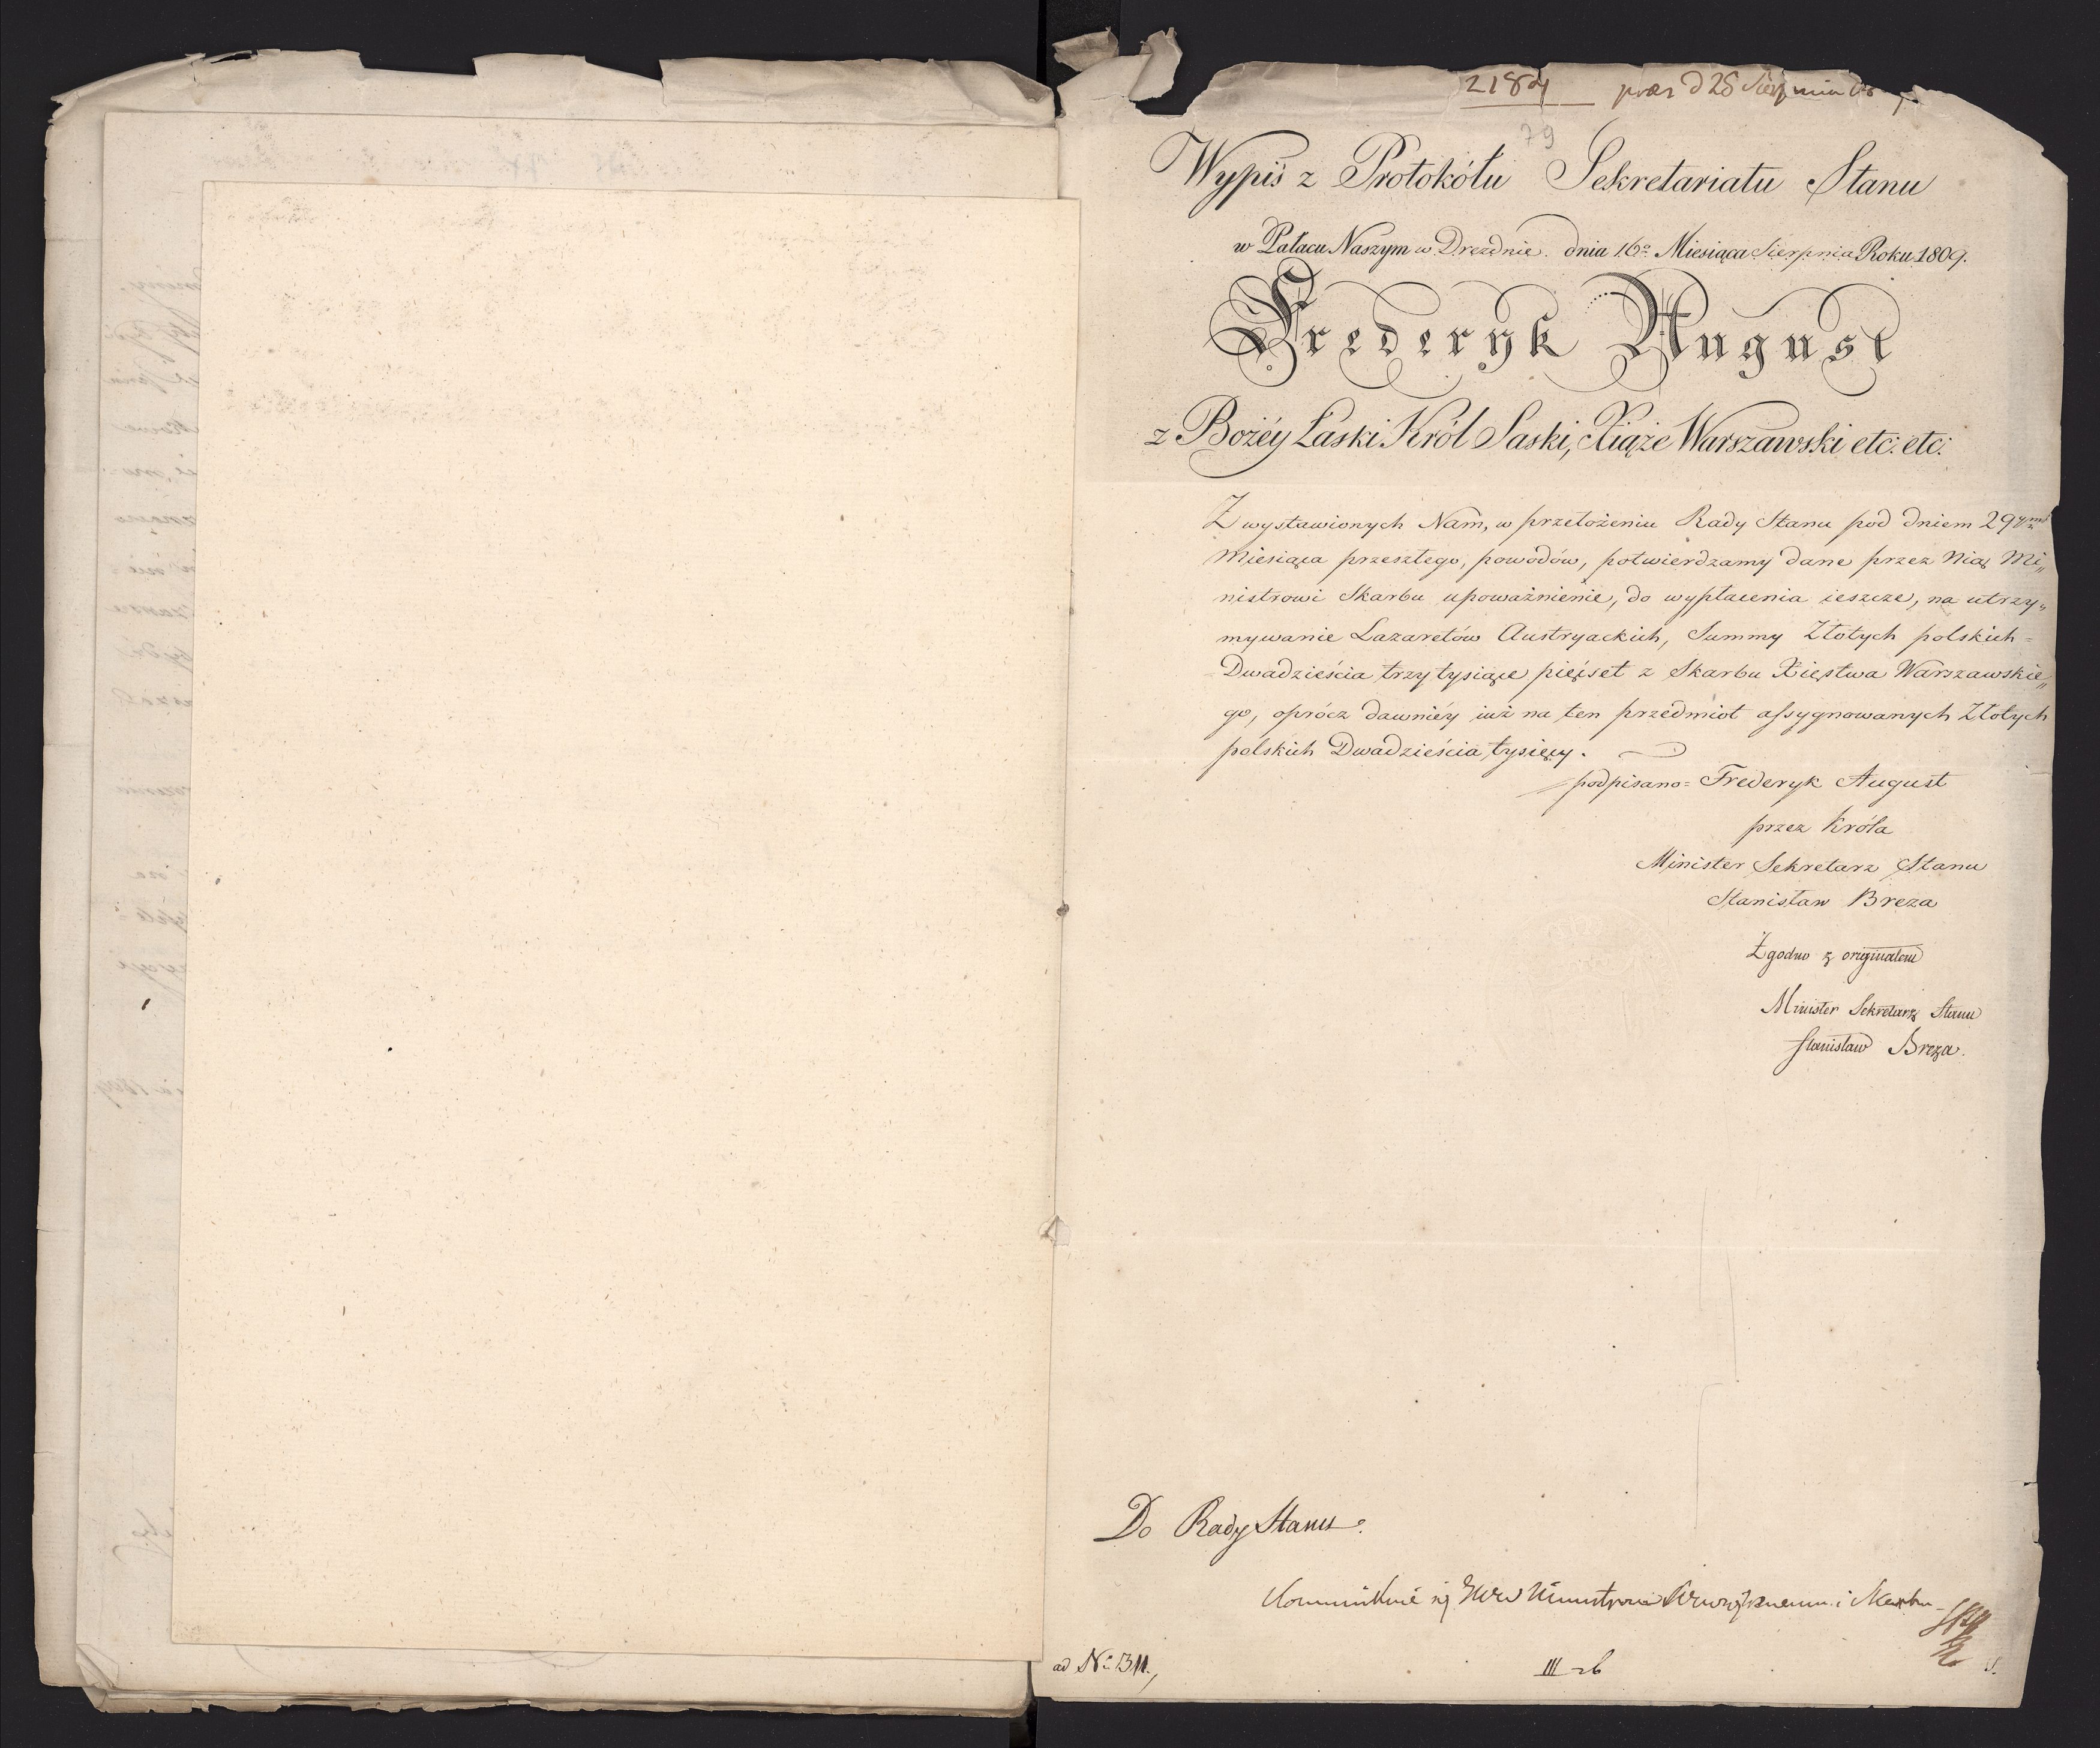 2184 præs d 28 Sierpnia
79
Wypis z Protokółu Sekretariatu Stanu
w Pałacu Naszym w Dreznie. dnia 16º Miesiąca Sierpnia Roku 1809.
Frederyk August
z Bożéy Łaski Król Saski, Xiąże Warszawski etc: etc:
Z wystawionych Nam, w przełożeniu Rady Stanu pod dniem 29ym
Miesiąca przeszłego, powodów, potwierdzamy dane przez Nią Mi„
nistrowi Skarbu upoważnienie, do wypłacenia ieszcze, na utrzy„
mywanie Lazaretów Austryackich, Summy Złotych polskich =
Dwadzieścia trzy tysiące pięćset z Skarbu Xięstwa Warszawskie„
go, oprócz dawniéy iuż na ten przedmiot assygnowanych Złotych
polskich Dwadzieścia tysięcy.
podpisano = Frederyk August
przez Króla
Minister Sekretarz Stanu
Stanisław Breza
Zgodno z originałem
Minister Sekretarz Stanu
Stanisław Breza.
Do Rady Stanu.
i Skarbu
ad Nº 1311.
III